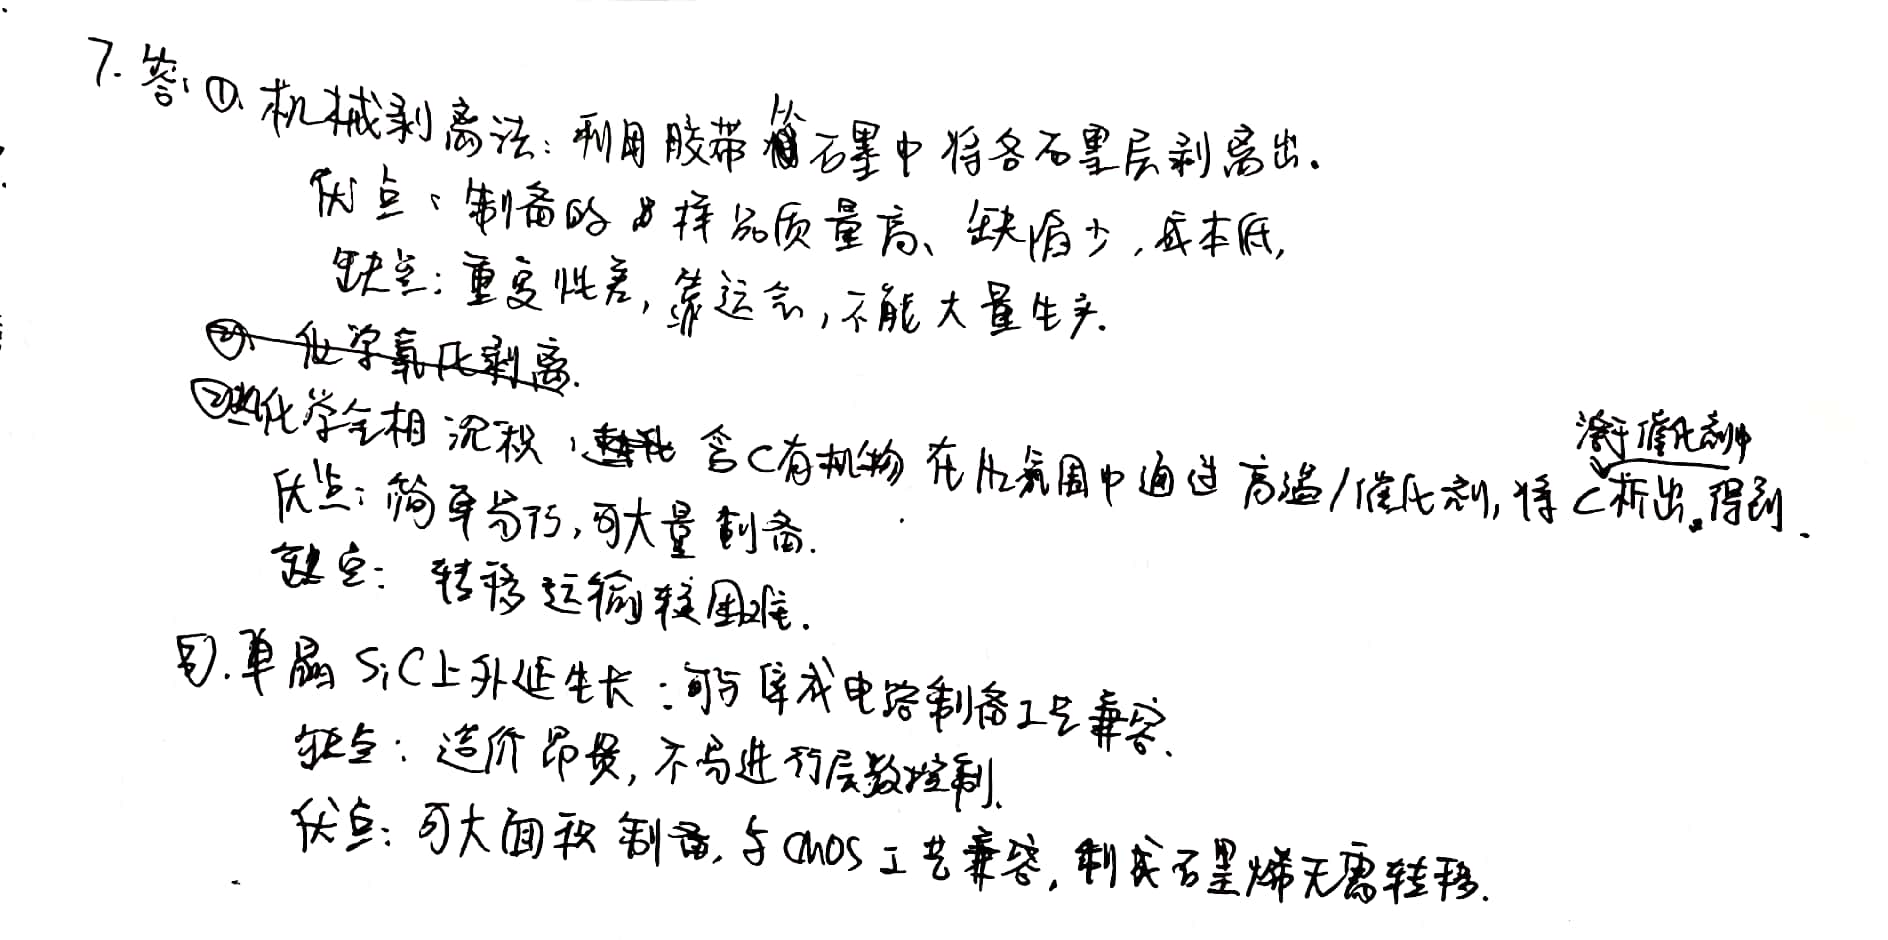 7. 答: ①. 机械剥离法: 利用胶带 石墨中将各石墨层剥离出.
优点: 制备的样品质量高、缺陷少, 成本低,
缺点: 重复性差, 靠运气, 不能大量生产.
②. 化学氧化剥离.
②化学气相沉积: 含C有机物在H₂氛围中通过高温/催化剂, 将C析出。得到.
溶于催化剂中
优点: 简单易行, 可大量制备.
缺点: 转移运输较困难.
③. 单晶SiC上外延生长: 可与集成电路制备工艺兼容.
缺点: 造价昂贵, 不易进行层数控制.
优点: 可大面积制备, 与CMOS工艺兼容, 制成石墨烯无需转移.